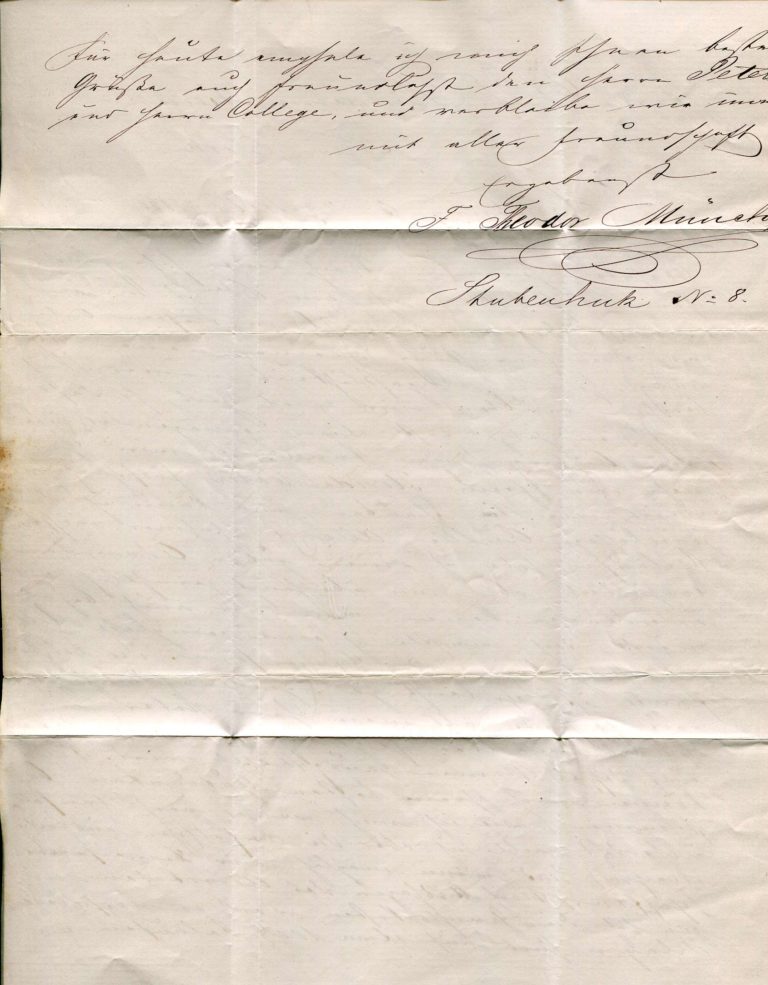 Für heute empfele ich mich Ihnen beste
Grüße auch freundlichst den Herrn Peter
und Herrn College, und verbleibe wie imm
mit aller Freundschaft
Ergebenst
F. Theodor Münch
Stubenhuk No 8.